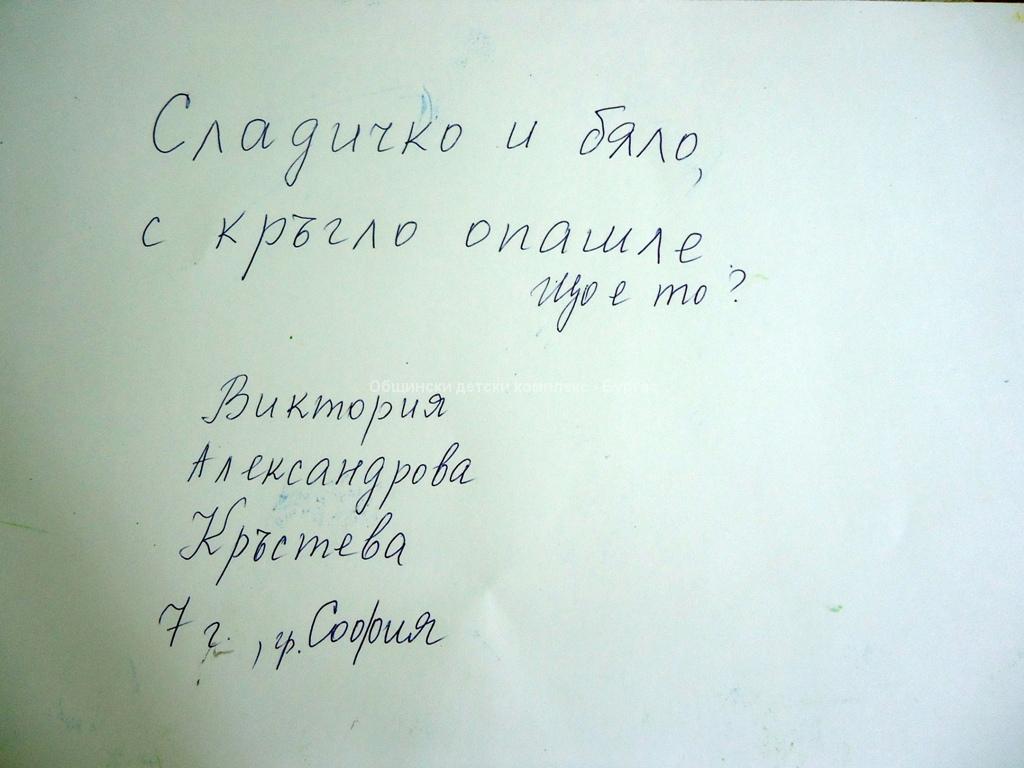 Сладичко и бяло,
с кръгло опашле.
Що е то?
Общински детски комплекс - Бургас
Виктория
Александрова
Кръстева
7 г., гр. София